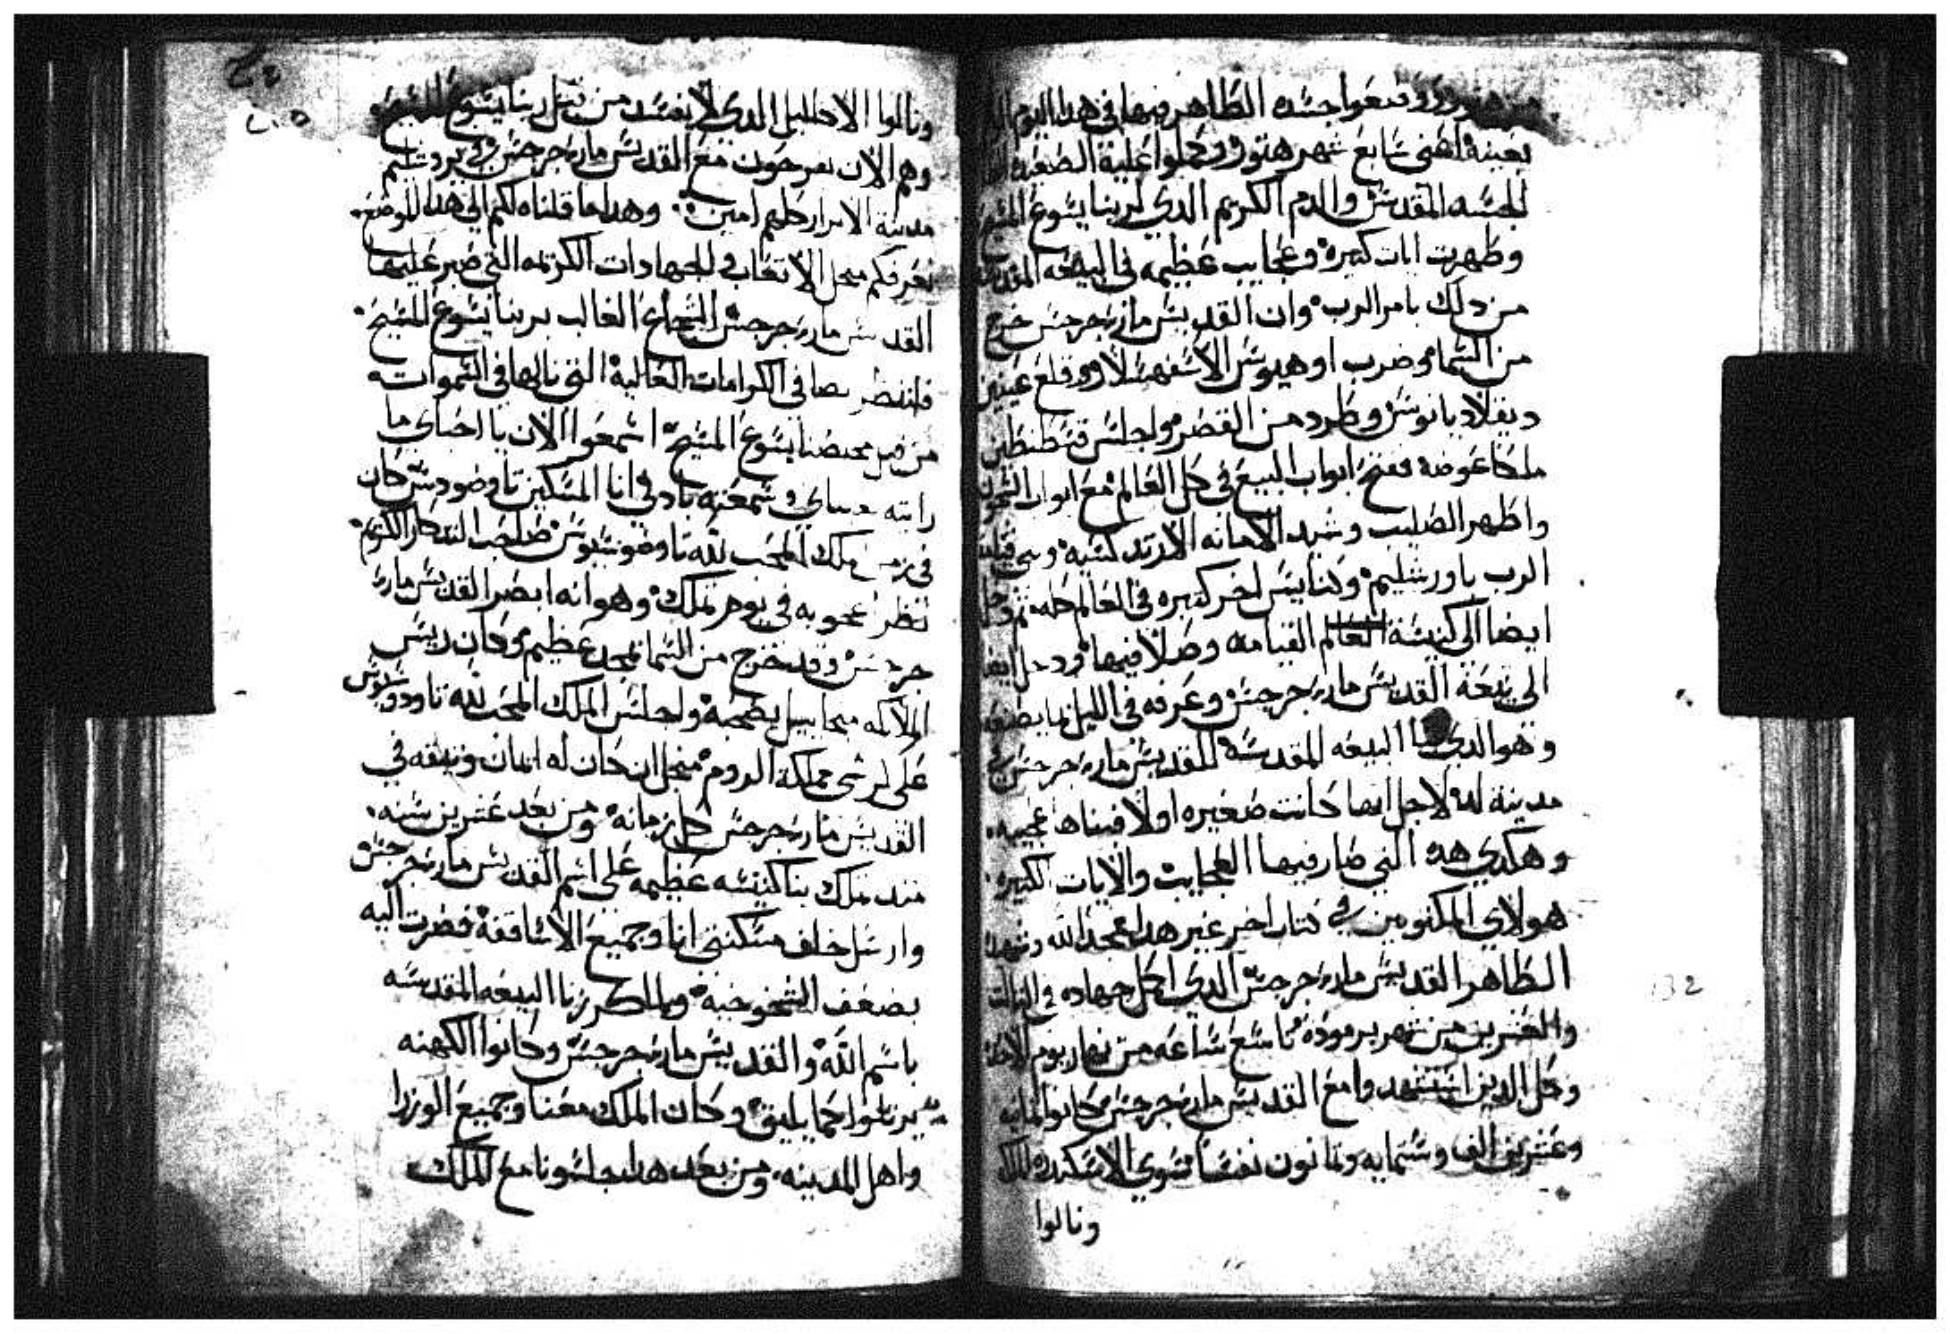 هتور ووضعوا جسده الطاهر فيها في هدا اليوم
بعينه اعني سابع شهر هتور وكملوا عليه الصعيده
الجسد المقدس والدم الكريم الدي لربنا يسوع المسيح
وظهرت ايات كتيره وعجايب عظيمه في البيعه المقدسه
من دلك بامر الرب وان القديس ماري جرجس خرج
من السما وضرب اوهيوس الاسفهسلار وقلع عينين
ديقلاديانوس وطرده من القصر واجلس قسطنطين
ملكا عوضه ففتح ابواب البيع في كل العالم مع ابواب
واظهر الصليب وشيد الامانه الارتدكسيه وبني
الرب باورشليم وكنايس اخر كتيره في العالم كله
ايضا الي كنيسة العالم القيامه وصلا فيها ودخل ايضا
الي بيعة القديس ماري جرجس وعرفه في الليل بما يصنعه
وهو الدي بنا البيعه المقدسه للقديس ماري جرجس في
مدينة لد لاجل انها كانت صغيره اولا فبناها عجيبه
وهكدي هده التي صار فيها العجايب والايات الكتيره
هولاي المكتوبين في كتاب اخر غير هدا بمجد الله وشهيده
الطاهر القديس ماري جرجس الدي اكمل جهاده في التالت
والعشرين من شهر برموده تاسع ساعه من نهار يوم الاحد
وكل الدين استشهدوا مع القديس ماري جرجس كانوا تمانيه
وعشرين الف وستمايه وتمانون نفسا سوي الاسكندره الملكه
ونالوا
ونالوا الاكاليل الدي لا يفسد من قبل ربنا يسوع المسيح
وهم الان يفرحون مع القديس ماري جرجس في يروشليم
مدينة الابرار كلهم امين وهدا ما قلناه لكم الي هدا الموضع
نعرفكم منجل الاتعاب في الجهادات الكريمه التي صبر عليها
القديس ماري جرجس الشجاع الغالب بربنا يسوع المسيح
فلننظر ايضا في الكرامات العاليه التي نالها في السموات
من قبل مخلصنا يسوع المسيح اسمعوا الان يا احباي ما
رايته بعيناي وسمعته بادني انا المسكين تاوضودسيس كان
في زمن ملك المحب لله تاوضوسيوس صاحب التدكار الكريم
نظر عجوبه في يوم ملك وهو انه ابصر القديس ماري
جرجس وقد خرج من السما بمجد عظيم وكان ريس
الملاكه ميخاييل يصحبه واجلس الملك المحب لله تاودوسيوس
علي كرسي مملكة الروم منجل ان كان له ايمان وتيقه في
القديس ماري جرجس كل زمانه ومن بعد عشرين سنه
مند ملك بنا كنيسه عظيمه علي اسم القديس ماري جرجس
وارسل خلف مسكنتي انا وجميع الاساقفه فصرت اليه
بضعف الشخوخيه ولما كرزنا البيعه المقدسه
باسم الله والقديس ماري جرجس وكانوا الكهنه
يرتلوا كما يليق وكان الملك معنا وجميع الوزرا
واهل المدينه ومن بعد هدا جلسونا مع الملك
132